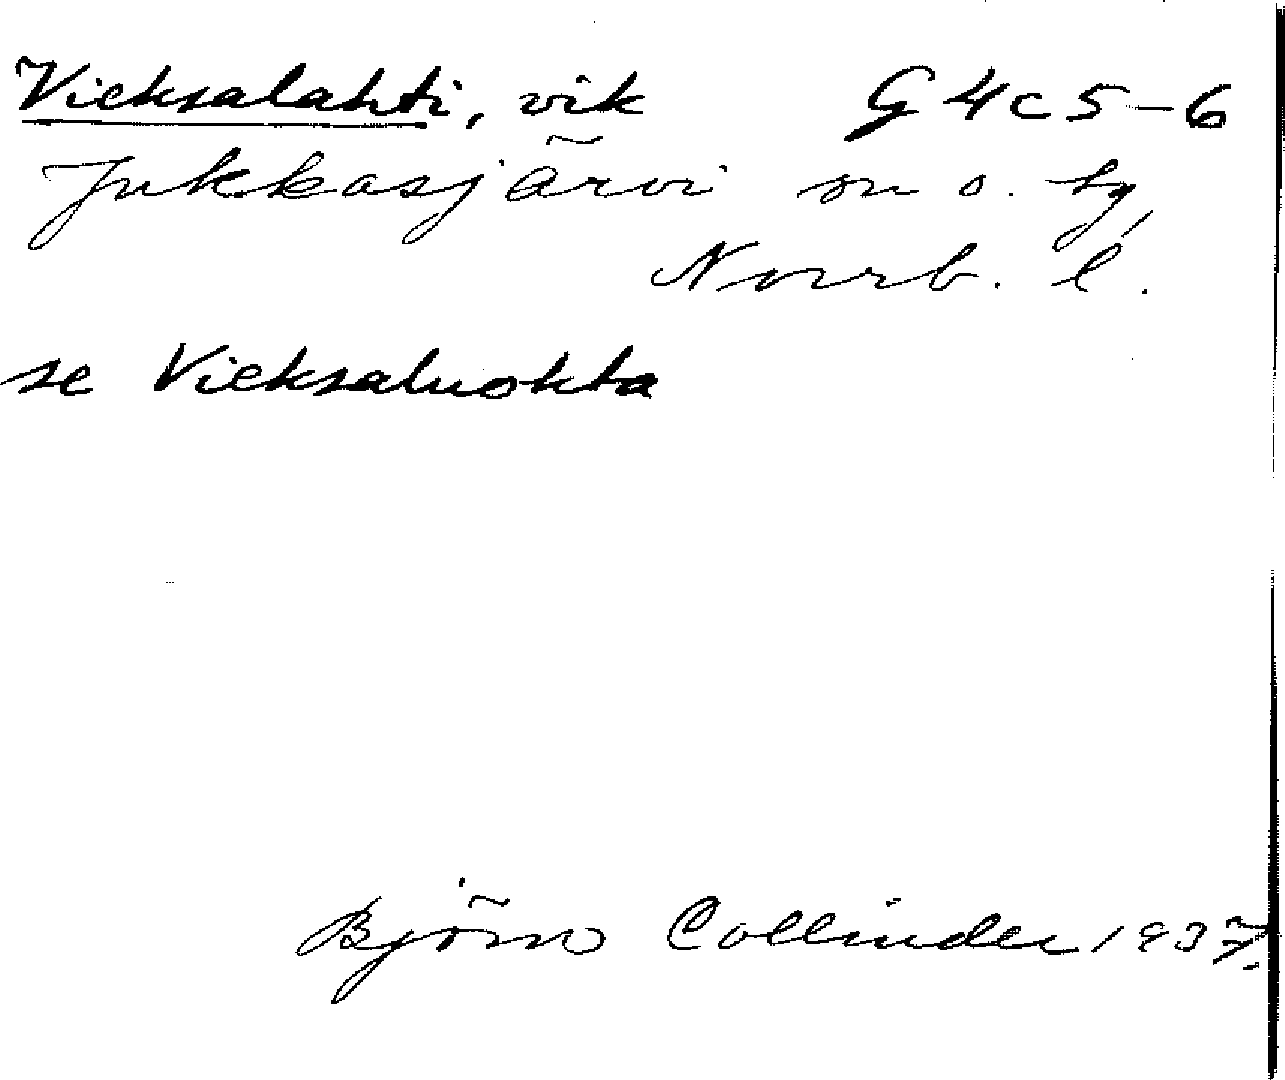 Vieksalahti, vik G 4 c 5-6
Jukkasjärvi sn o. tg,
Norrb. l.
se Vieksaluokta
Björn Collinder 1937.